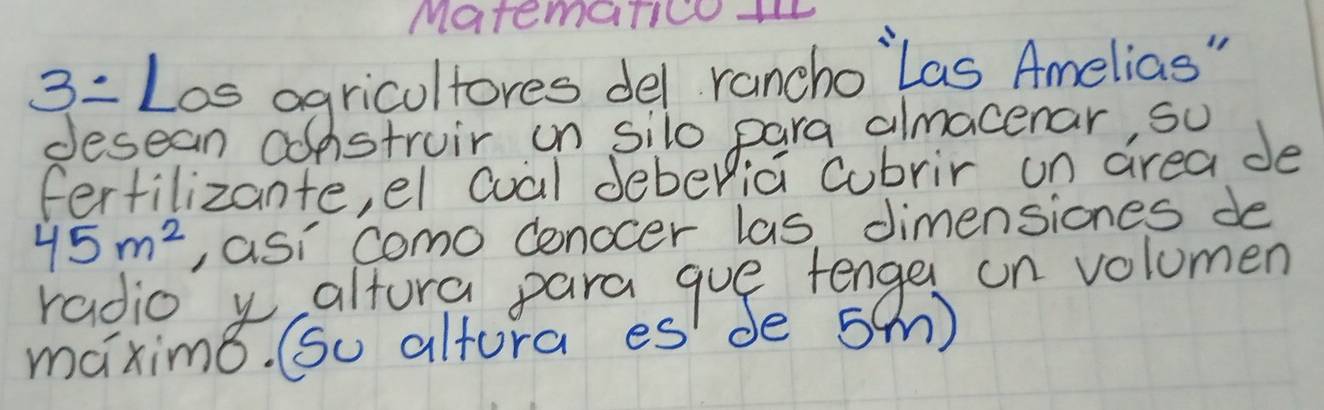 Matemático III
3=Los agricultores del rancho "Las Amelias"
desean construir un silo para almacenar, su
fertilizante, el cual debería cubrir un área de
45 m², así como conocer las dimensiones de
radio y altura para que tenga un volumen
máximo. (Su altura es de 5m)